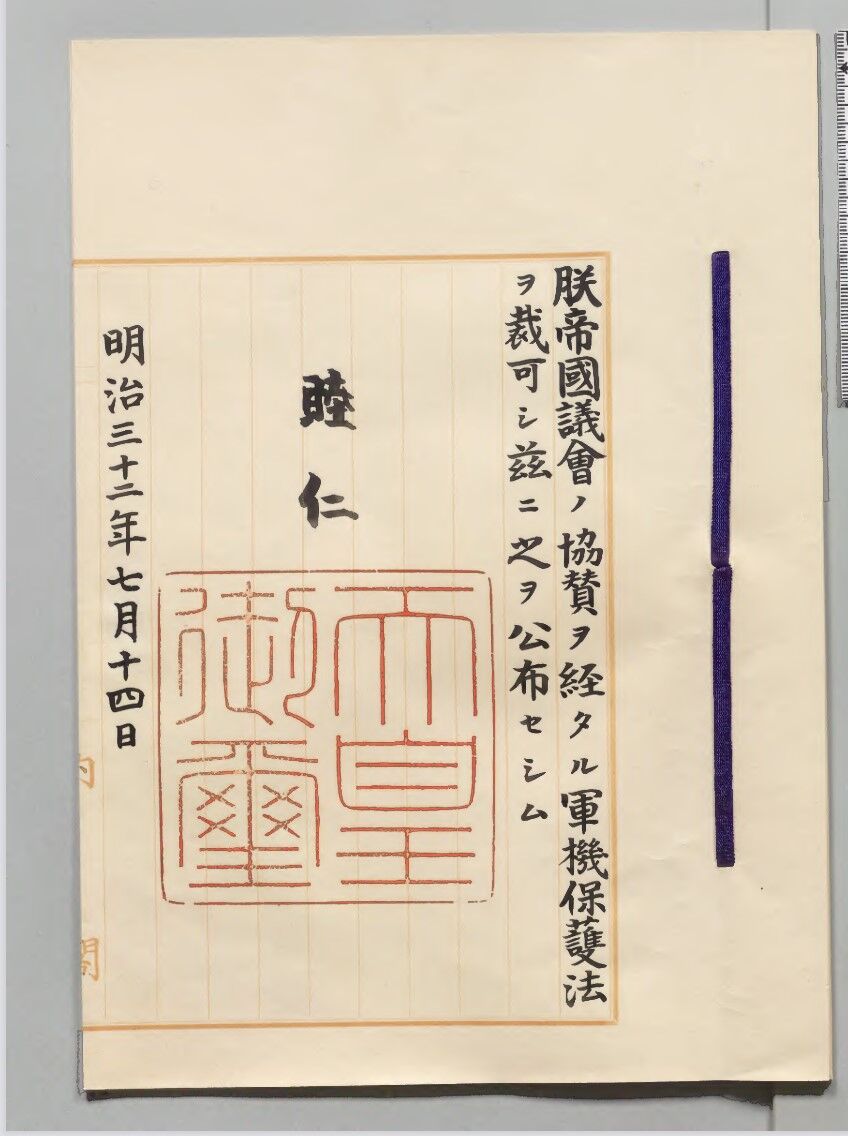 朕帝國議會ノ協賛ヲ経タル軍機保護法
ヲ裁可シ茲ニ之ヲ公布セシム
睦仁
天皇
御璽
明治三十二年七月十四日
内閣